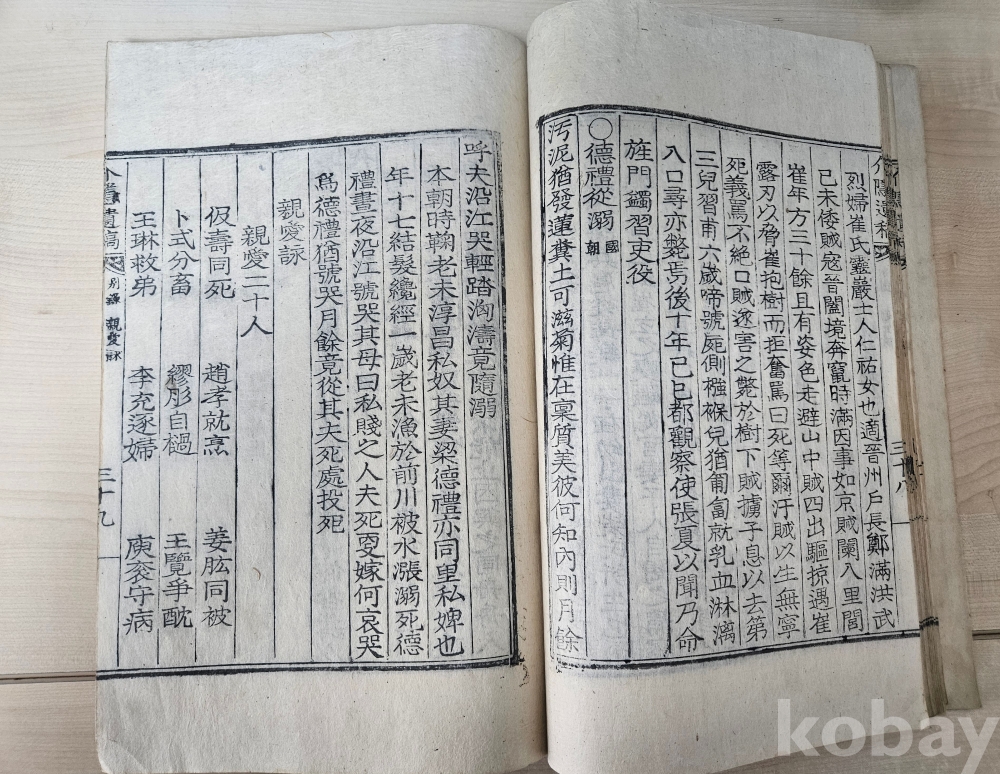 介隱遺稿 三十八
烈婦崔氏靈巖士人仁祐女也適晉州戶長鄭滿洪武
己未倭賊寇晉闔境奔竄時滿因事如京賊闌入里閭
崔年方三十餘且有姿色走避山中賊四出驅掠遇崔
露刃以脅崔抱樹而拒奮罵曰死等爾汙賊以生無寧
死義罵不絕口賊遂害之斃於樹下賊擄子息以去第
三兒習甫六歲啼號屍側襁褓兒猶匍匐就乳血淋漓
入口尋亦斃焉後十年己巳都觀察使張夏以聞乃命
旌門蠲習吏役
○德禮從溺 國朝
汚泥猶發蓮糞土可滋菊惟在稟質美彼何知內則月餘
呼夫沿江哭輕踏洶濤竟隨溺
本朝時鞠老未淳昌私奴其妻梁德禮亦同里私婢也
年十七結髮纔經一歲老未漁於前川被水漲溺死德
禮晝夜沿江號哭其母曰私賤之人夫死更嫁何哀哭
爲德禮猶號哭月餘竟從其夫死處投死
親愛詠
親愛二十人
伋壽同死 趙孝就烹 姜肱同被
卜式分畜 繆肜自檛 王覽爭酖
王琳救弟 李充逐婦 庾袞守病
介隱遺稿 別錄 親愛詠 三十九
kobay